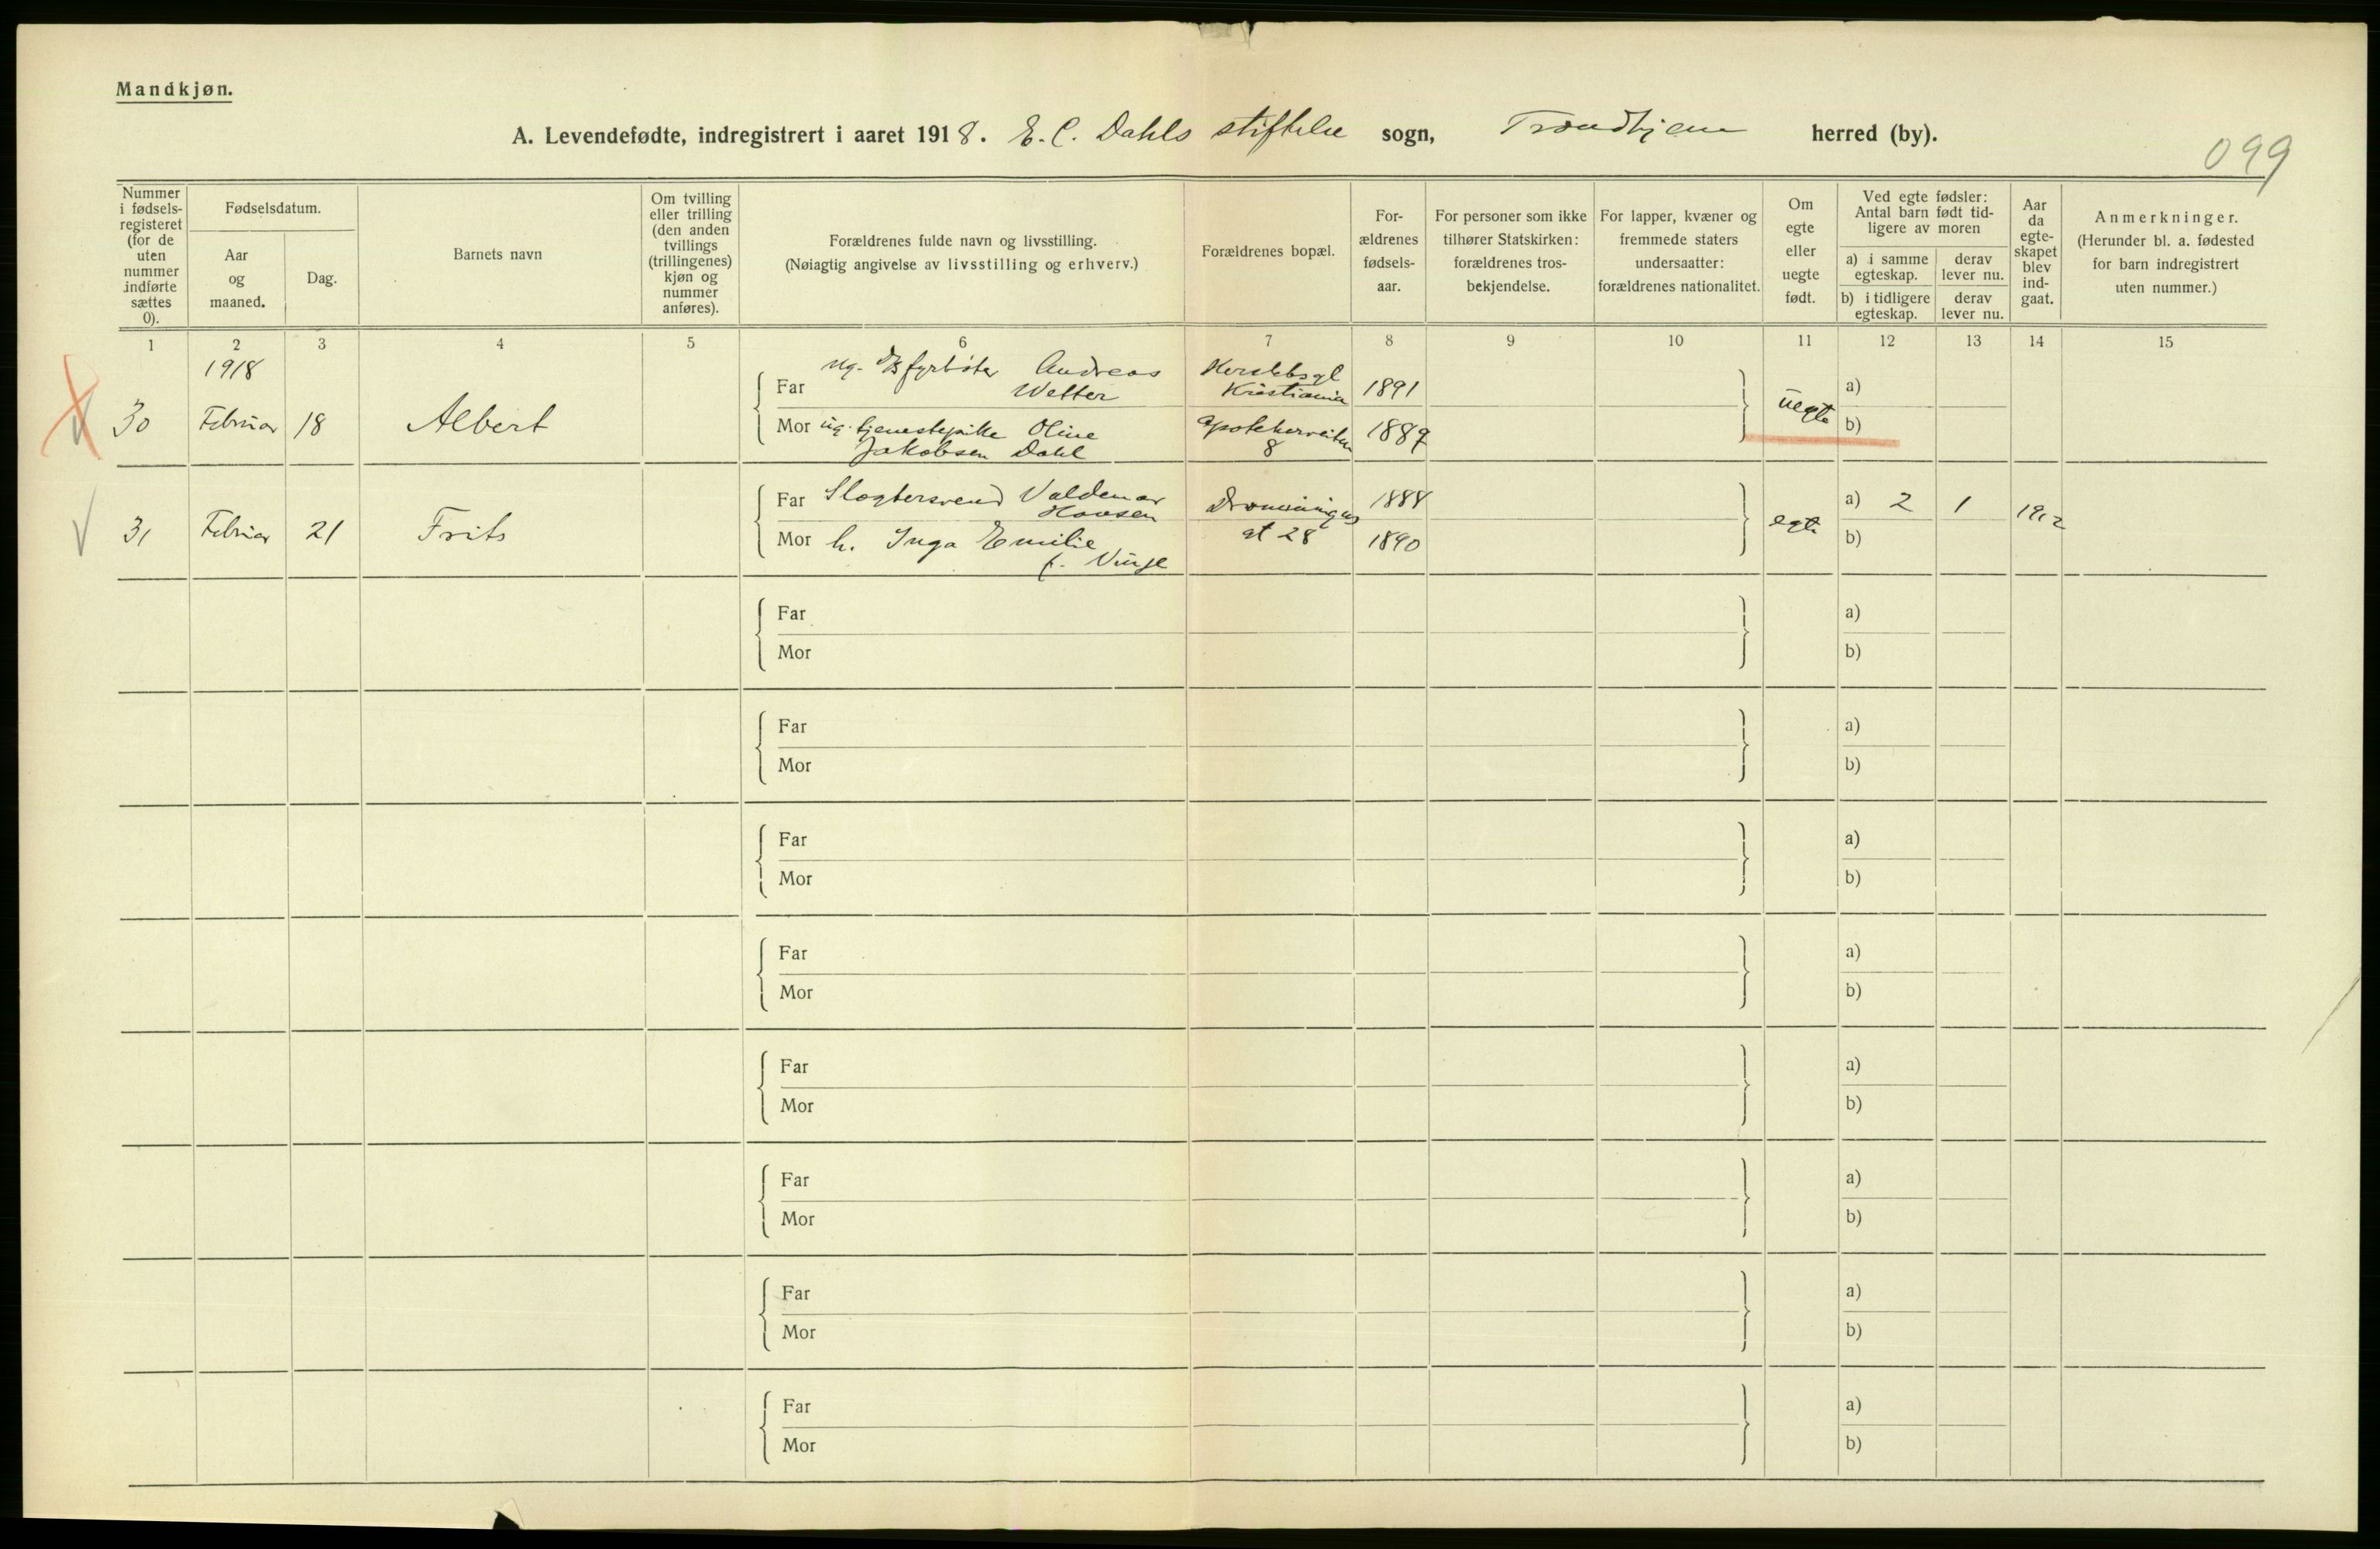 Mandkjøn.
A. Levendefødte, indregistrert i aaret 1918. E. C. Dahls stiftelse sogn, Trondhjem herred (by).
099
Nummer
i fødsels-
registeret
(for de
uten
nummer
indførte
sættes
0).
Fødselsdatum.
Aar
og
maaned.
Dag.
Barnets navn
Om tvilling
eller trilling
(den anden
tvillings
(trillingenes)
kjøn og
nummer
anføres).
Forældrenes fulde navn og livsstilling.
(Nøiagtig angivelse av livsstilling og erhverv.)
Forældrenes bopæl.
For-
ældrenes
fødsels-
aar.
For personer som ikke
tilhører Statskirken:
forældrenes tros-
bekjendelse.
For lapper, kvæner og
fremmede staters
undersaatter:
forældrenes nationalitet.
Om
egte
eller
uegte
født.
Ved egte fødsler:
Antal barn født tid-
ligere av moren
a) i samme
egteskap.
derav
lever nu.
b) i tidligere
egteskap.
derav
lever nu.
Aar
da
egte-
skapet
blev
ind-
gaat.
Anmerkninger.
(Herunder bl. a. fødested
for barn indregistrert
uten nummer.)
1 2 3 4 5 6 7 8 9 10 11 12 13 14 15
1918
30 Februar 18 Albert
Far ug. fyrbøter Andreas
Wetter
Kristiania
1891
Mor ug. tjenestepike Oline
Jakobsen Dahl
Apotekerveiten
8
1889
uegte
a)
b)
31 Februar 21 Frits
Far Slagtersvend Valdemar
Hansen
Dronningens
gt 28
1888
Mor h. Inga Emilie
f. Vinje
1890
egte
a) 2 1 1912
b)
Far a)
Mor b)
Far a)
Mor b)
Far a)
Mor b)
Far a)
Mor b)
Far a)
Mor b)
Far a)
Mor b)
Far a)
Mor b)
Far a)
Mor b)